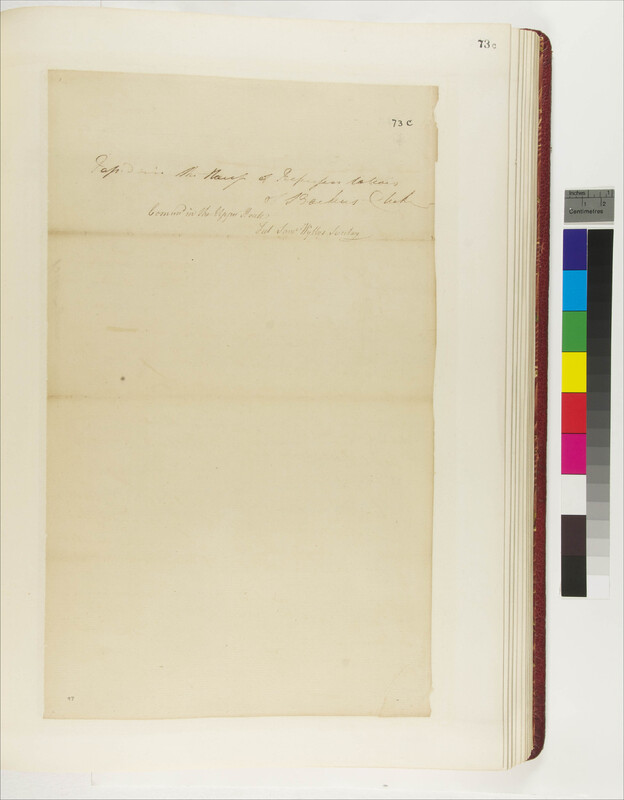 73 c
73 C
Pass'd in the House of Representatives
of Backus Clerk
Concurd in the Upper House
Test Saml Wyllys Secretry
Inches 1
1 2
Centimetres